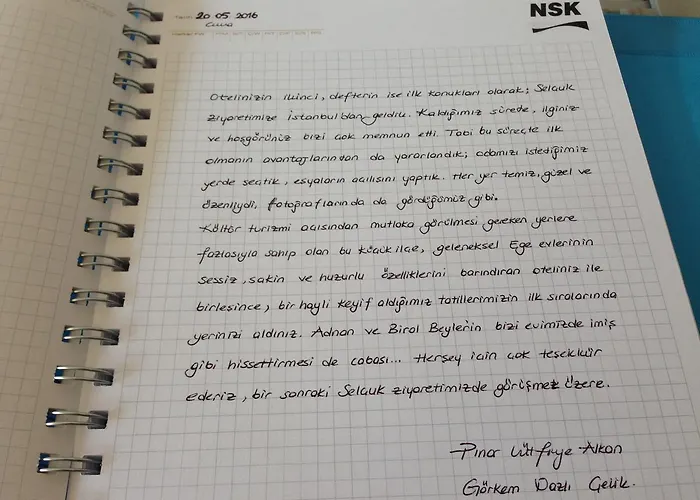 NSK
20 05 2016
Cuma
Otelinizin ikinci, defterin ise ilk konukları olarak; Selçuk
ziyaretimize İstanbul'dan geldik. Kaldığımız sürede, ilginiz
ve hoşgörünüz bizi çok memnun etti. Tabi bu süreçte ilk
olmanın avantajlarından da yararlandık; odamızı istediğimiz
yerde seçtik, eşyaların açılışını yaptık. Her yer temiz, güzel ve
özenliydi, fotoğraflarında da gördüğümüz gibi.
Kültür turizmi açısından mutlaka görülmesi gereken yerlere
fazlasıyla sahip olan bu küçük ilçe, geleneksel Ege evlerinin
sessiz, sakin ve huzurlu özelliklerini barındıran oteliniz ile
birleşince, bir hayli keyif aldığımız tatillerimizin ilk sıralarında
yerinizi aldınız. Adnan ve Birol Beyler'in bizi evimizde imiş
gibi hissettirmesi de cabası... Herşey için çok teşekkür
ederiz, bir sonraki Selçuk ziyaretimizde görüşmek üzere.
Pınar Lütfiye Alkan
Görkem Nazlı Çelik.